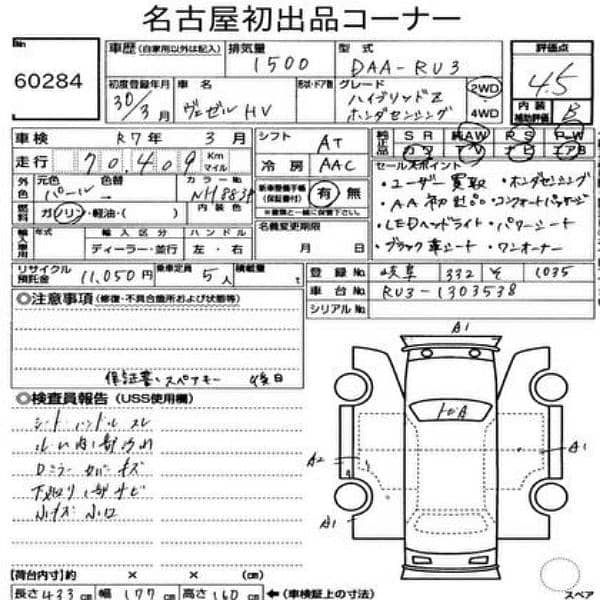 名古屋初出品コーナー
60284
車歴 (自家用以外は記入) 排気量 1500 型式 DAA-RU3 評価点 4.5
初度登録年月 30/3月 車名 ヴェゼル HV 形状・ドア数 グレード ハイブリッドZ ホンダセンシング 2WD 4WD 内装補助評価 B
車検 R7年 3月 シフト AT 純正品 SR 純AW PS PW
カワ TV ナビ エアB
走行 70,409 Km マイル 冷房 AAC セールスポイント
外色 元色 パール 色替 → カラーNo NH883P 新車整備手帳 (保証書付) 有 無 ・ユーザー買取 ・ホンダセンシング
燃料 ガソリン・軽油・( ) 内装色 ※書類と一緒に保管下さい ・AA初出品
輸入車用 年式 輸入区分 ハンドル 名義変更期限 ・LEDヘッドライト ・パワーシート
ディーラー・並行 左・右 月 日 ・ブラック革シート ・ワンオーナー
リサイクル預託金 11,050円 乗車定員 5人 積載量 t 登録No 岐阜 332 そ 1035
◎注意事項 (修復・不具合箇所および状態等) 車台No RU3-1303538
シリアルNo
保証書・スペアキー 後日
A1
◎検査員報告 (USS使用欄)
シート・ハンドル スレ
Dミラーカバー キズ
小キズ
トビA
A2
A1
A1
【荷台内寸】約 × × (cm)
長さ 433 cm 幅 177 cm 高さ 160 cm ←(車検証上の寸法)
スペア